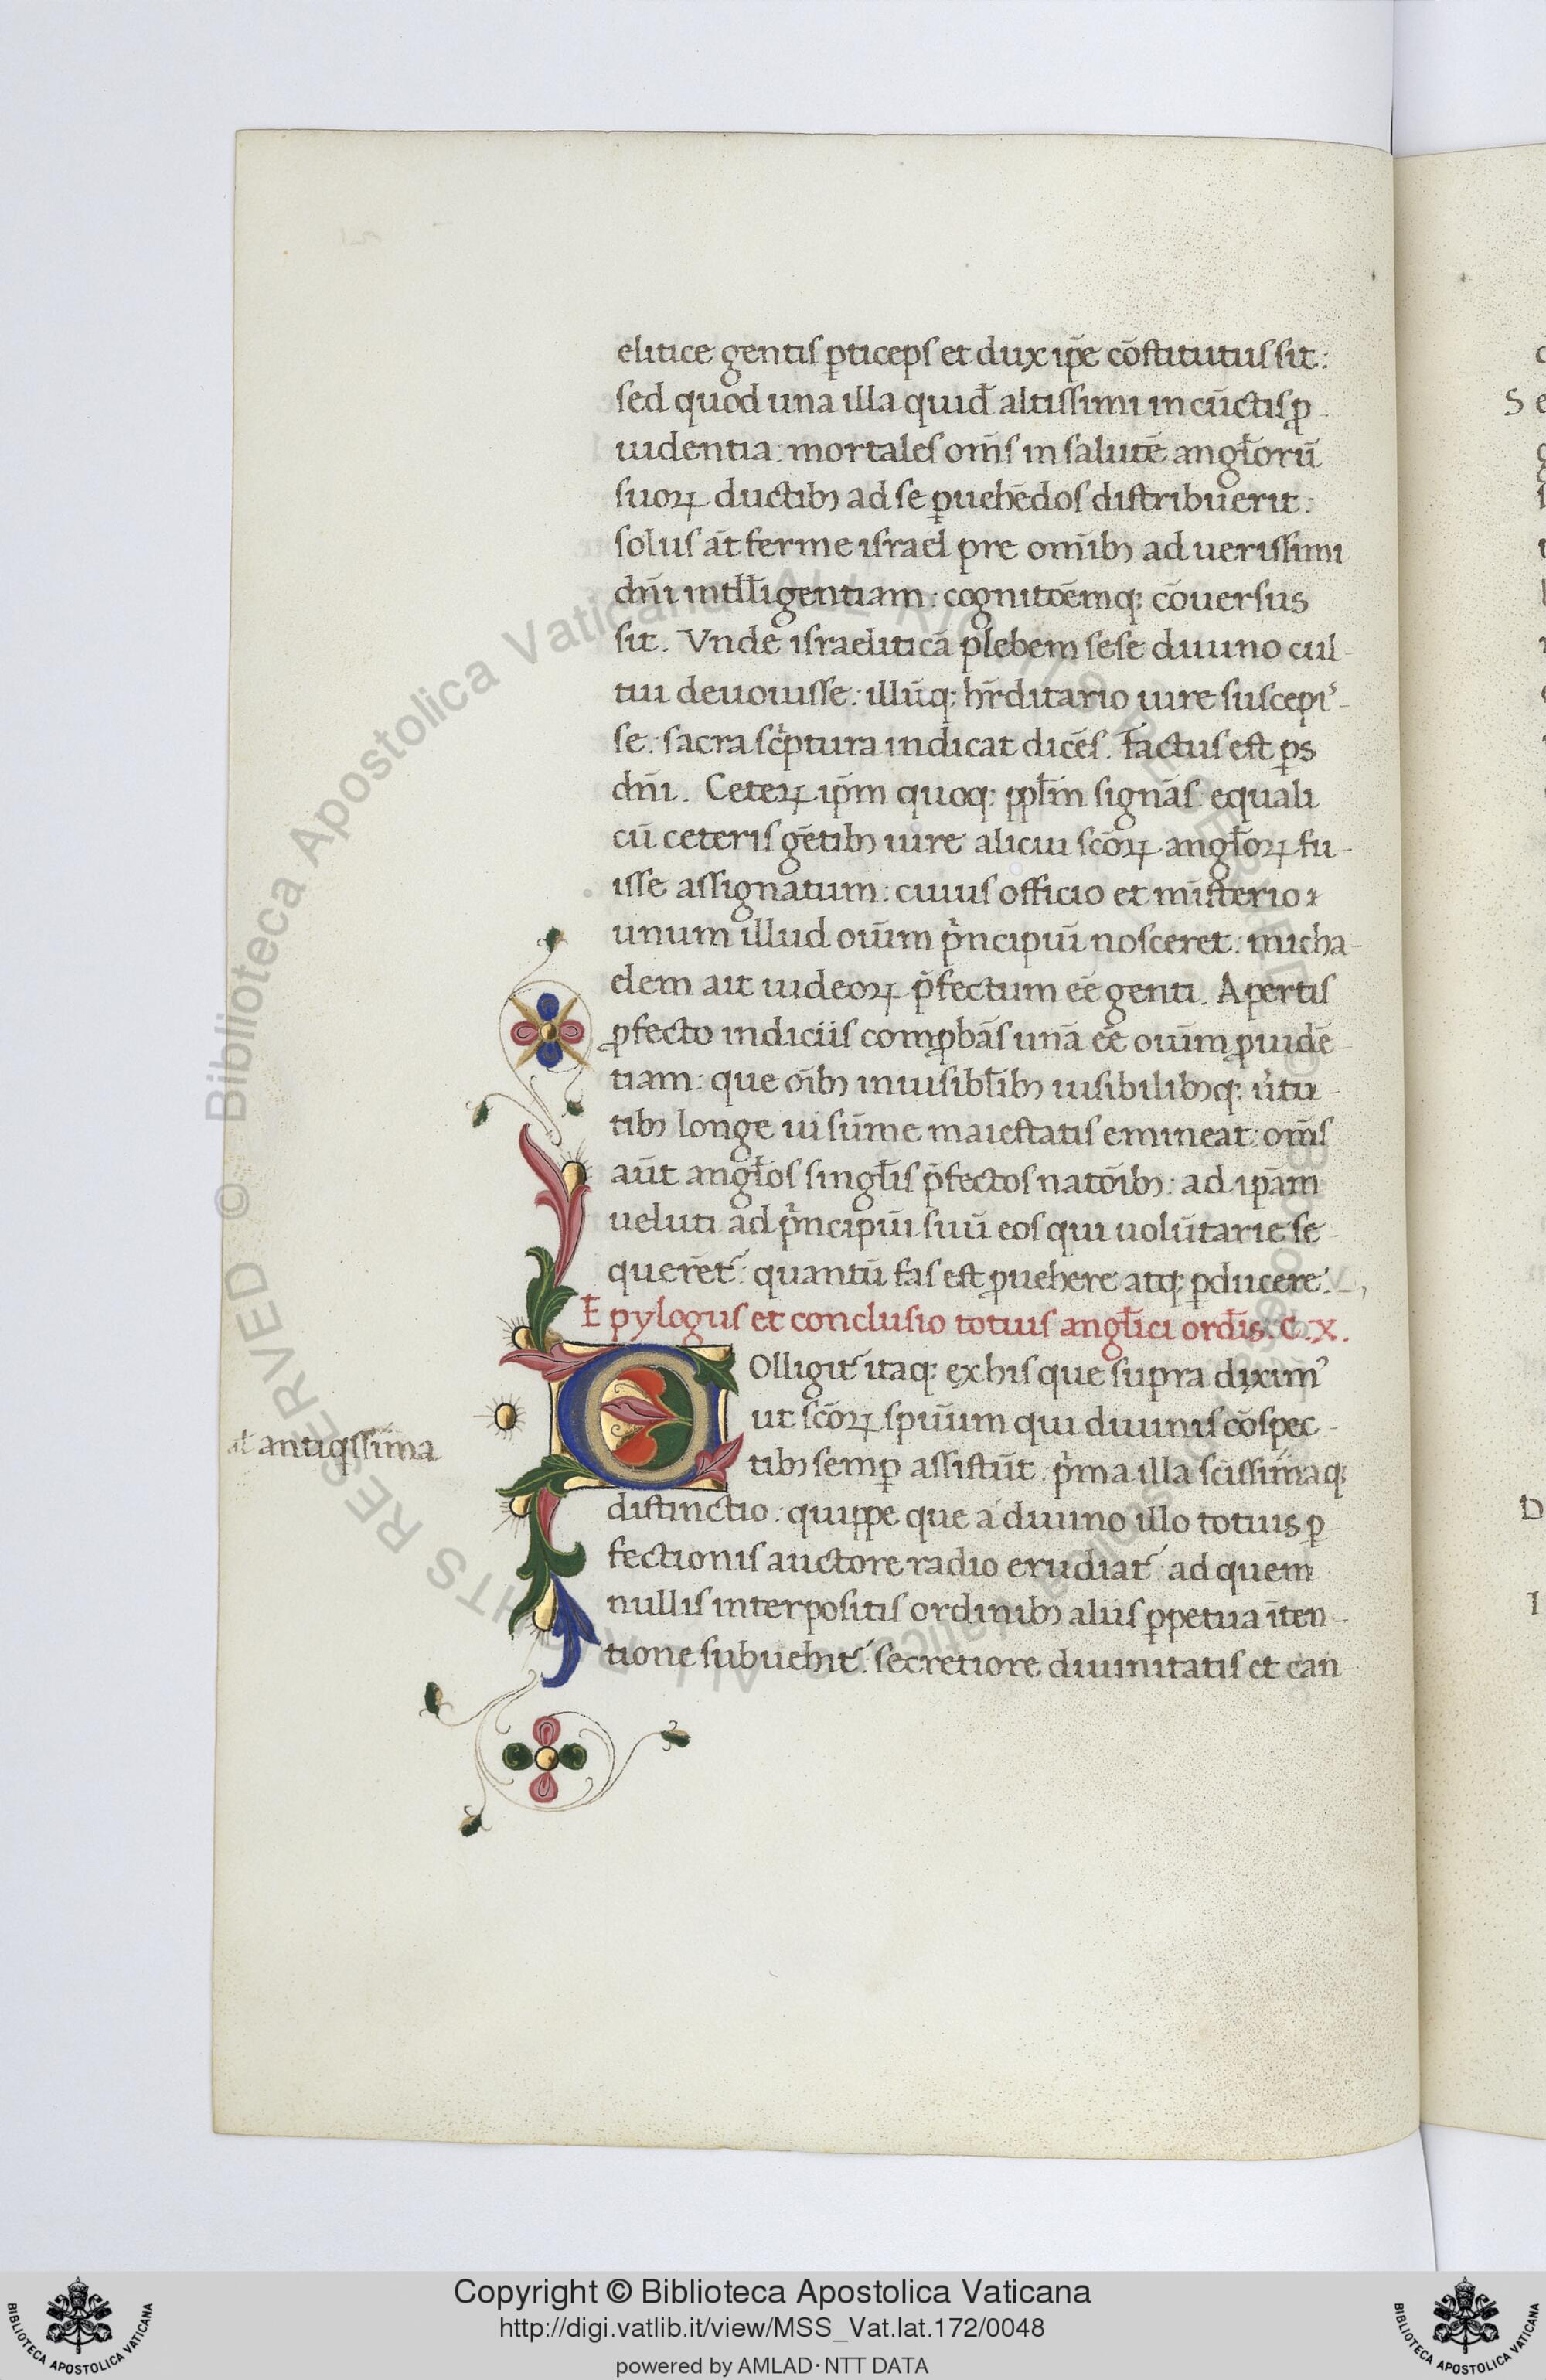 elitice gentis ꝑticeps et dux ip̄e cōstitutus sit:
sed quod una illa quid̄ altissimi in cūctis ꝓ
uidentia: mortales om̄s in salutē angl̄orū
suoꝝ ductibꝫ ad se ꝑuehēdos distribuerit:
solus āt ferme israel pre omībꝫ ad uerissimi
dn̄i intell̄igentiam: cognitōēmqꝫ cōuersus
sit. Vnde israeliticā plebem sese diuino cul
tui deuouisse: illūqꝫ hr̄ditario iure suscepiꝰ
se: sacra scͥptura indicat dicēs. Factus est ꝑs
dn̄i. Ceteꝝ ip̄m quoqꝫ ppl̄m signās equali
cū ceteris gētibꝫ iure alicui scōꝝ angl̄oꝝ fu
isse assignatum: cuius officio et mīsterio
unum illud oīum pͥncipiū nosceret: micha
elem ait iudeoꝝ p̄fectum eē genti. Apertis
ꝓfecto indiciis comꝓbās unā eē oīum ꝓuidē
tiam: que oībꝫ inuisibl̄ibꝫ uisibilibꝫqꝫ uͥtu
tibꝫ longe ui sūme maiestatis emineat: om̄s
aūt angl̄os singl̄is p̄fectos natōībꝫ: ad ip̄am
ueluti ad pͥncipiū suū eos qui uolūtarie se
querēt᷑: quantū fas est ꝓuehere atqꝫ ꝑducere.
Epylogus et conclusio totius angl̄ici ord̄is. C. X.
Olligit᷑ itaqꝫ ex his que supra diximꝰ
ut scōꝝ spūum qui diuinis cōspec
al̄ antiqͥssima
tibꝫ semꝑ assistūt: pͥma illa scīssimaqꝫ
distinctio: quippe que a diuino illo totius ꝑ
fectionis auctore radio erudiat᷑: ad quem
nullis interpositis ordinibꝫ aliis ꝑpetua īten
tione subuehit᷑: secretiore diuinitatis et can
Copyright © Biblioteca Apostolica Vaticana
http://digi.vatlib.it/view/MSS_Vat.lat.172/0048
powered by AMLAD·NTT DATA
BIBLIOTECA APOSTOLICA VATICANA
BIBLIOTECA APOSTOLICA VATICANA